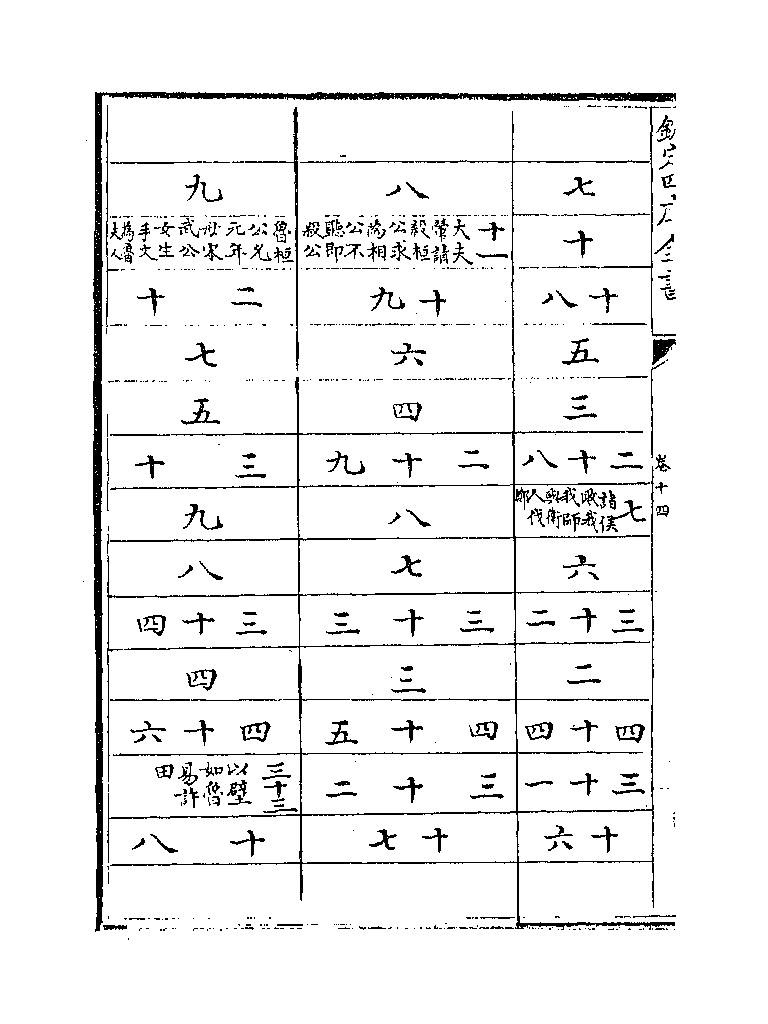 欽定四庫全書
卷十四
七
十
十八
五
三
二十八
七 諸侯敗我我師與衛人伐鄭
六
三十二
二
四十四
三十一
十六
八
十一 大夫翬請殺桓公求為相公不聽即殺公
十九
六
四
二十九
八
七
三十三
三
四十五
三十二
十七
九
魯桓公允元年母宋武公女生手文為魯夫人
二十
七
五
三十
九
八
三十四
四
四十六
三十三 以璧加魯易許田
十八